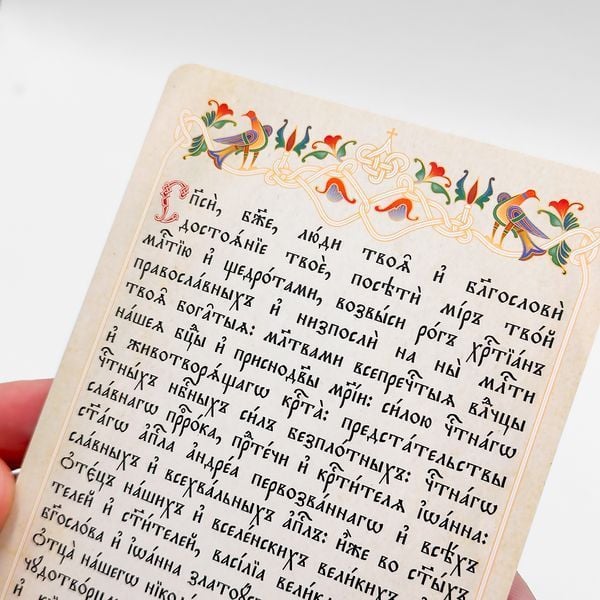 Сп҃сѝ, бж҃е, лю́ди твоѧ҄ и҆ бл҃гословѝ
достоѧ́нїе твоѐ, посѣтѝ мі́ръ тво́й
мл҃тїю и҆ щедро́тами, возвы́си ро́гъ хр҃тїа́нъ
правосла́вныхъ и҆ низпослѝ на ны̀ мл҃ти
твоѧ҄ бога́тыѧ: мл҃твами всепреч҃тыѧ влⷣчцы
на́шеѧ бцⷣы и҆ приснодв҃ы мр҃і́и: си́лою чⷭ҇тна́гѡ
и҆ животворѧ́щагѡ крⷭ҇та̀: предста́тельствы
чⷭ҇тны́хъ нбⷭ҇ныхъ си́лъ безпло́тныхъ: чⷭ҇тна́гѡ
сла́внагѡ прⷪ҇ро́ка, прⷣте́чи и҆ крⷭ҇ти́телѧ і҆ѡа́нна:
ст҃а́гѡ а҆пⷭ҇ла а҆ндре́а первозва́ннагѡ и҆ всѣ́хъ
сла́вныхъ и҆ всехва́льныхъ а҆пⷭ҇лъ: и҆̀же во ст҃ы́хъ
ѻ҆тє́цъ на́шихъ и҆ вселе́нскихъ вели́кихъ
телей и҆ ст҃и́телей, васі́лїа вели́к
бг҃осло́ва и҆ і҆ѡа́нна златоꙋ́с
ѻ҆тца̀ на́шегѡ нїко́л
чꙋдотво́рц